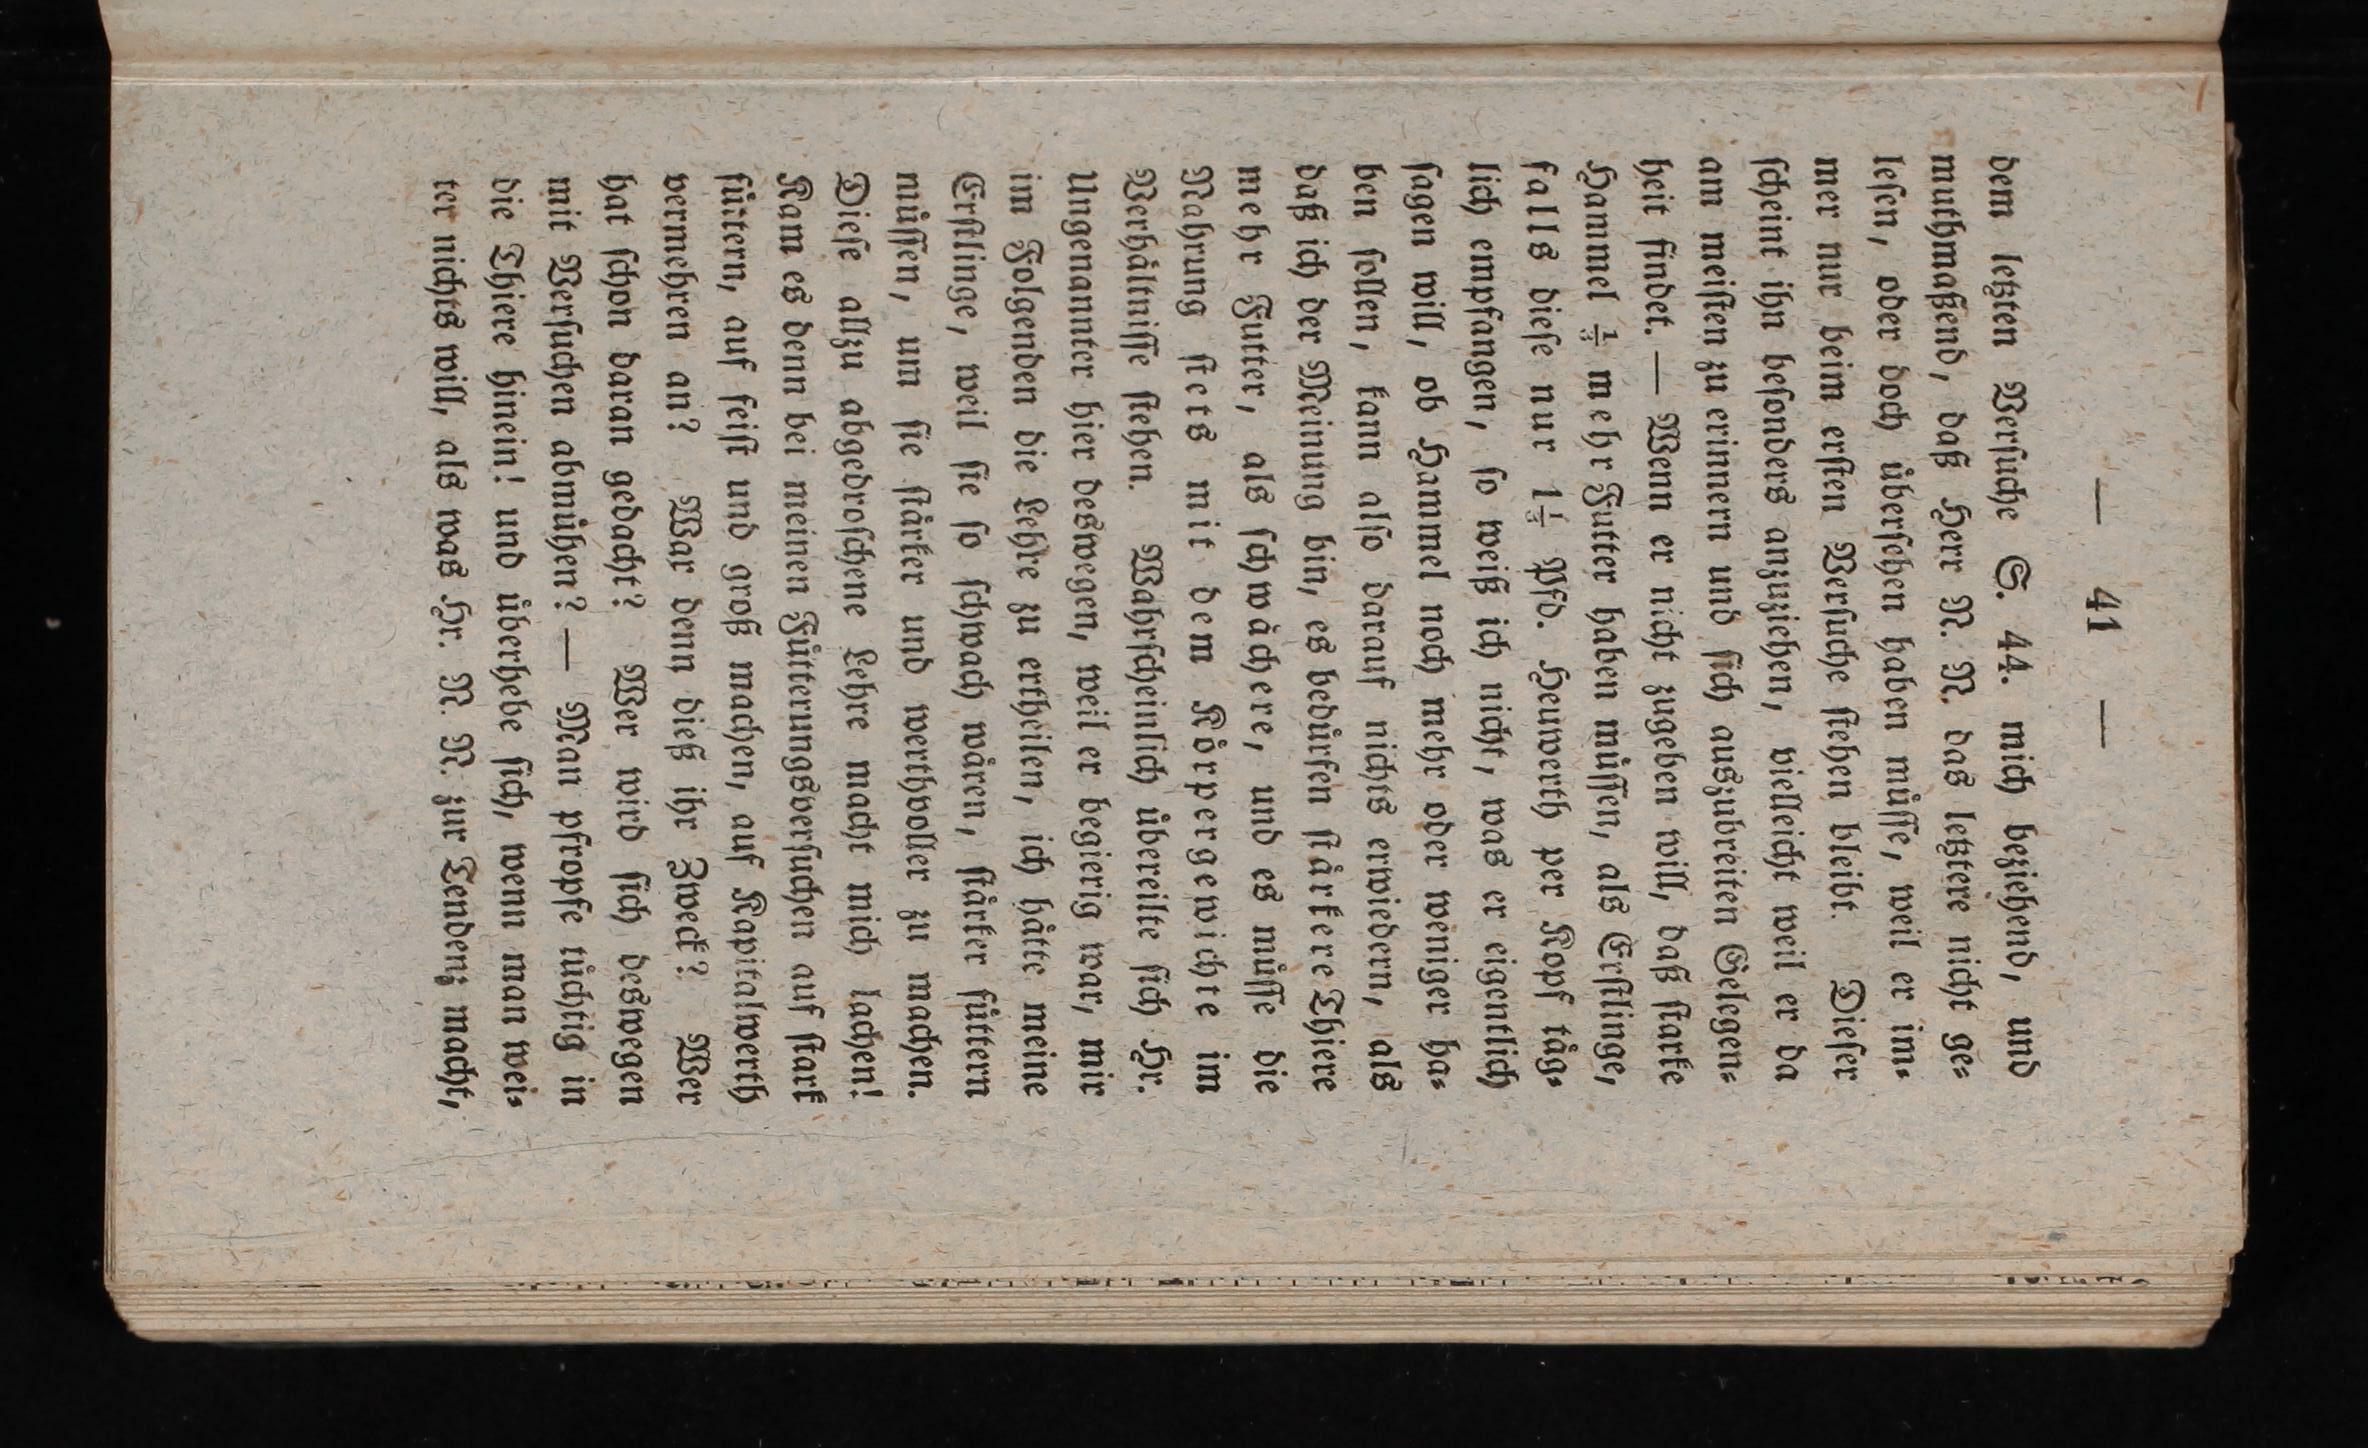 — 41 —
dem letzten Versuche S. 44. mich beziehend, und
muthmaßend, daß Herr R. R. das letztere nicht ge-
lesen, oder doch übersehen haben müsse, weil er im-
mer nur beim ersten Versuche stehen bleibt. Dieser
scheint ihn besonders anzuziehen, vielleicht weil er da
am meisten zu erinnern und sich auszubreiten Gelegen-
heit findet. — Wenn er nicht zugeben will, daß starke
Hammel ⅓ mehr Futter haben müssen, als Erstlinge,
falls diese nur 1⅓ Pfd. Heuwerth per Kopf täg-
lich empfangen, so weiß ich nicht, was er eigentlich
sagen will, ob Hammel noch mehr oder weniger ha-
ben sollen, kann also darauf nichts erwiedern, als
daß ich der Meinung bin, es bedürfen stärkere Thiere
mehr Futter, als schwächere, und es müsse die
Nahrung stets mit dem Körpergewichte im
Verhältnisse stehen. Wahrscheinlich übereilte sich Hr.
Ungenannter hier deswegen, weil er begierig war, mir
im Folgenden die Lehre zu ertheilen, ich hätte meine
Erstlinge, weil sie so schwach wären, stärker füttern
müssen, um sie stärker und werthvoller zu machen.
Diese allzu abgedroschene Lehre macht mich lachen!
Kam es denn bei meinen Fütterungsversuchen auf stark
füttern, auf feist und groß machen, auf Kapitalwerth
vermehren an? War denn dieß ihr Zweck? Wer
hat schon daran gedacht? Wer wird sich deswegen
mit Versuchen abmühen? — Man pfropfe tüchtig in
die Thiere hinein! und überhebe sich, wenn man wei-
ter nichts will, als was Hr. R. R. zur Tendenz macht,